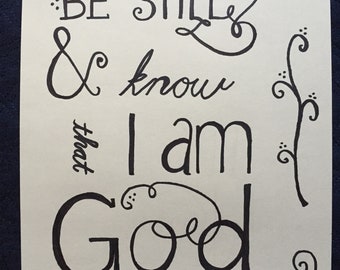 BE STILL
& know
that I am
God